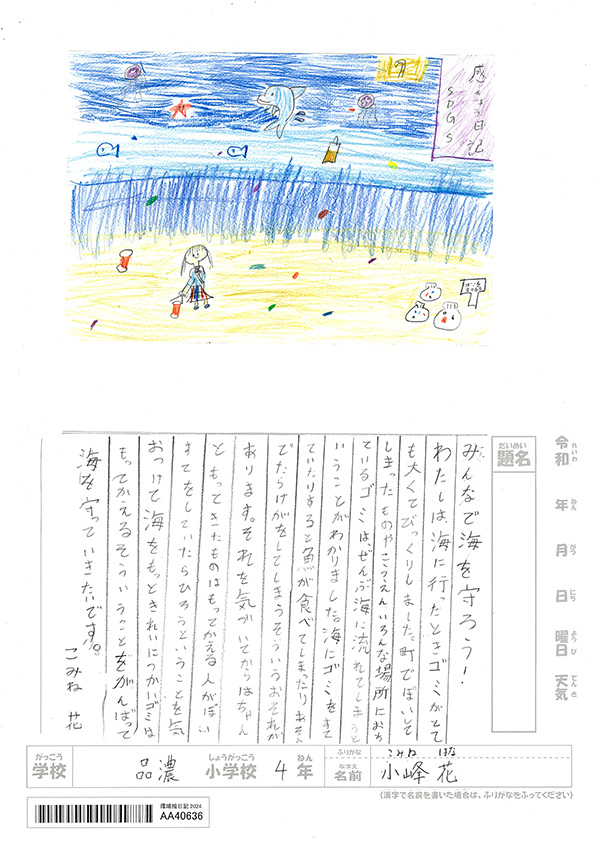 感きょう日記
SDGS
みんなで海を守ろう!
わたしは、海に行ったときゴミがとて
も大くてびっくりしました。町でぽいして
しまったものやこうえんいろんな場所におち
ているゴミは、ぜんぶ海に流れてしまうと
いうことがわかりました。海にゴミをすて
ていたりすると魚が食べてしまったりあそん
でたらけがをしてしまうそういうおそれが
あります。それを気づいてからはちゃん
ともってきたものはもってかえる人がぽい
すてをしていたらひろうということを気
おつけて海をもっときれいにつかいゴミは
もってかえるそういうことをがんばって
海を守っていきたいです。
こみね 花
だいめい
題名
れいわ
令和
ねん
年
がつ
月
にち
日
ようび
曜日
てんき
天気
がっこう
学校
品濃
しょうがっこう
小学校
4
ねん
年
ふりがな
こみね はな
なまえ
名前
小峰 花
(漢字で名前を書いた場合は、ふりがなをふってください)
環境絵日記 2024
AA40636